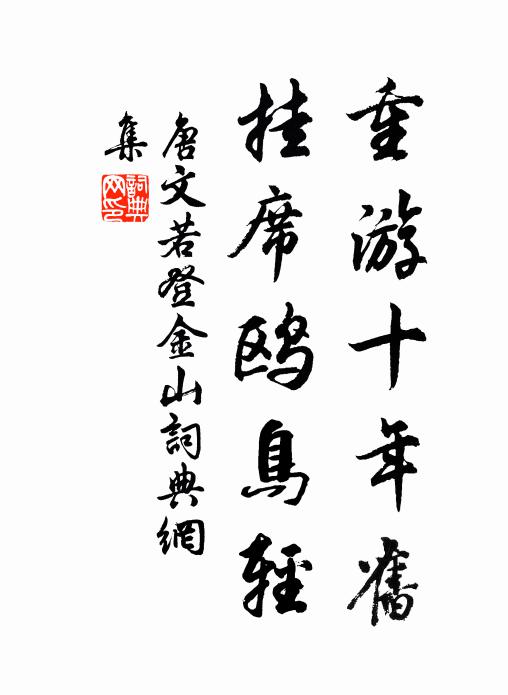 重游十年舊
挂席鸥鳥輕
唐文若登金山詞典網
集
詞典
网印